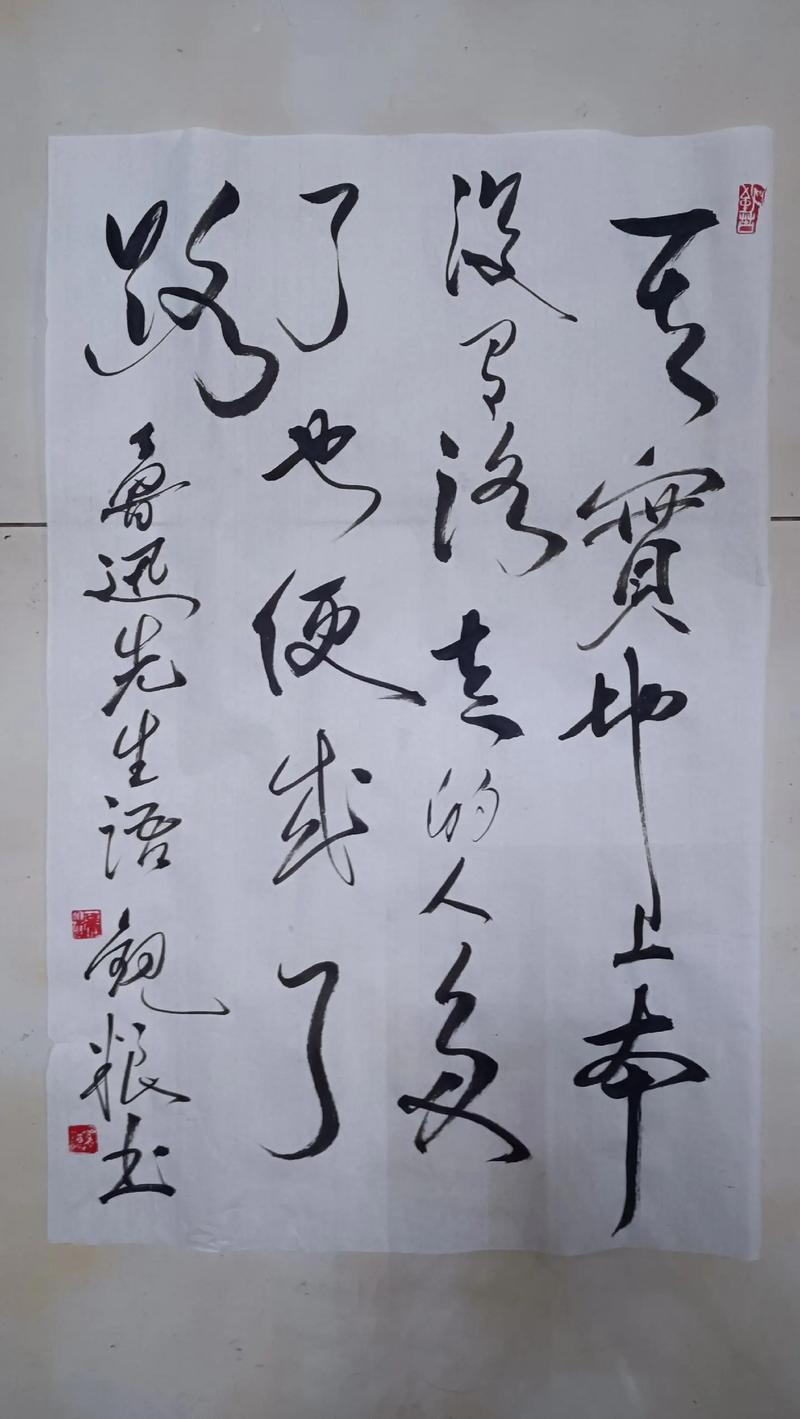 其實地上本
没有路走的人多
了也便成了
路
魯迅先生語
粮书